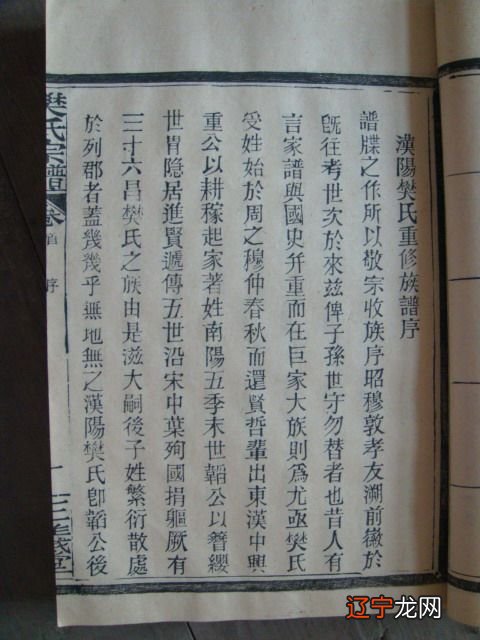 漢陽樊氏重修族譜序
譜牒之作所以敬宗收族序昭穆敦孝友溯前徽於
旣往考世次於來茲俾子孫世守勿替者也昔人有
言家譜與國史幷重而在巨家大族則爲尤亟樊氏
受姓始於周之穆仲春秋而還賢哲輩出東漢中興
重公以耕稼起家著姓南陽五季末世韜公以簪纓
世胄隐居進賢遞傳五世沿宋中葉殉國捐軀厥有
三十六昌樊氏之族由是滋大嗣後子姓繁衍散處
於列郡者蓋幾幾乎無地無之漢陽樊氏卽韜公後
樊氏宗譜 卷首 序 一
辽宁龙网